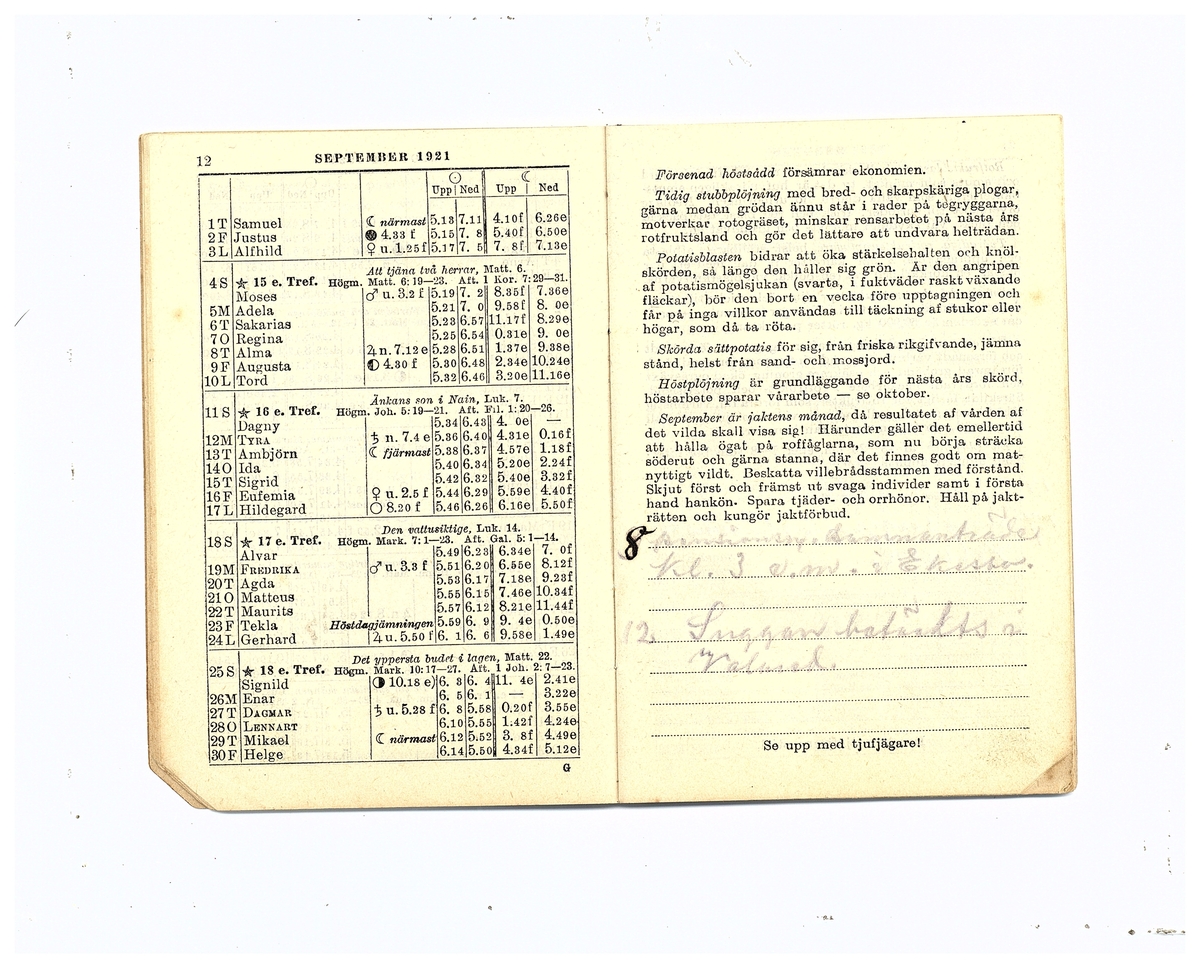 12 SEPTEMBER 1921
☉ ☾
Upp Ned Upp Ned
1 T Samuel ☾ närmast 5.13 7.11 4.10f 6.26e
2 F Justus ● 4.33 f 5.15 7. 8 5.40f 6.50e
3 L Alfhild ♀ u. 1.25 f 5.17 7. 5 7. 8f 7.13e
Att tjäna två herrar, Matt. 6.
4 S ★ 15 e. Tref. Högm. Matt. 6: 19—23. Aft. 1 Kor. 7: 29—31.
Moses ♂ u. 3.2 f 5.19 7. 2 8.35f 7.36e
5 M Adela 5.21 7. 0 9.58f 8. 0e
6 T Sakarias 5.23 6.57 11.17f 8.29e
7 O Regina 5.25 6.54 0.31e 9. 0e
8 T Alma ♃ n. 7.12 e 5.28 6.51 1.37e 9.38e
9 F Augusta ◐ 4.30 f 5.30 6.48 2.34e 10.24e
10 L Tord 5.32 6.46 3.20e 11.16e
Änkans son i Nain, Luk. 7.
11 S ★ 16 e. Tref. Högm. Joh. 5: 19—21. Aft. Fil. 1: 20—26.
Dagny 5.34 6.43 4. 0e —
12 M TYRA ♄ n. 7.4 e 5.36 6.40 4.31e 0.16f
13 T Ambjörn ☾ fjärmast 5.38 6.37 4.57e 1.18f
14 O Ida 5.40 6.34 5.20e 2.24f
15 T Sigrid 5.42 6.32 5.40e 3.32f
16 F Eufemia ♀ u. 2.5 f 5.44 6.29 5.59e 4.40f
17 L Hildegard ○ 8.20 f 5.46 6.26 6.16e 5.50f
Den vattusiktige, Luk. 14.
18 S ★ 17 e. Tref. Högm. Mark. 7: 1—23. Aft. Gal. 5: 1—14.
Alvar 5.49 6.23 6.34e 7. 0f
19 M FREDRIKA ♂ u. 3.3 f 5.51 6.20 6.55e 8.12f
20 T Agda 5.53 6.17 7.18e 9.23f
21 O Matteus 5.55 6.15 7.46e 10.34f
22 T Maurits 5.57 6.12 8.21e 11.44f
23 F Tekla Höstdagjämningen 5.59 6. 9 9. 4e 0.50e
24 L Gerhard ♃ u. 5.50 f 6. 1 6. 6 9.58e 1.49e
Det yppersta budet i lagen, Matt. 22.
25 S ★ 18 e. Tref. Högm. Mark. 10: 17—27. Aft. 1 Joh. 2: 7—23.
Signild ◑ 10.18 e) 6. 3 6. 4 11. 4e 2.41e
26 M Enar 6. 5 6. 1 — 3.22e
27 T DAGMAR ♄ u. 5.28 f 6. 8 5.58 0.20f 3.55e
28 O LENNART 6.10 5.55 1.42f 4.24e
29 T Mikael ☾ närmast 6.12 5.52 3. 8f 4.49e
30 F Helge 6.14 5.50 4.34f 5.12e
G
Försenad höstsådd försämrar ekonomien.
Tidig stubbplöjning med bred- och skarpskäriga plogar,
gärna medan grödan ännu står i rader på tegryggarna,
motverkar rotogräset, minskar rensarbetet på nästa års
rotfruktsland och gör det lättare att undvara helträdan.
Potatisblasten bidrar att öka stärkelsehalten och knöl-
skörden, så länge den håller sig grön. Är den angripen
af potatismögelsjukan (svarta, i fuktväder raskt växande
fläckar), bör den bort en vecka före upptagningen och
får på inga villkor användas till täckning af stukor eller
högar, som då ta röta.
Skörda sättpotatis för sig, från friska rikgifvande, jämna
stånd, helst från sand- och mossjord.
Höstplöjning är grundläggande för nästa års skörd,
höstarbete sparar vårarbete — se oktober.
September är jaktens månad, då resultatet af vården af
det vilda skall visa sig! Härunder gäller det emellertid
att hålla ögat på roffåglarna, som nu börja sträcka
söderut och gärna stanna, där det finnes godt om mat-
nyttigt vildt. Beskatta villebrådsstammen med förstånd.
Skjut först och främst ut svaga individer samt i första
hand hankön. Spara tjäder- och orrhönor. Håll på jakt-
rätten och kungör jaktförbud.
8 Pensionsn. Sammanträde
Kl. 3 e.m. i Ekebo.
12. Suggan betäckts i
Se upp med tjufjägare!